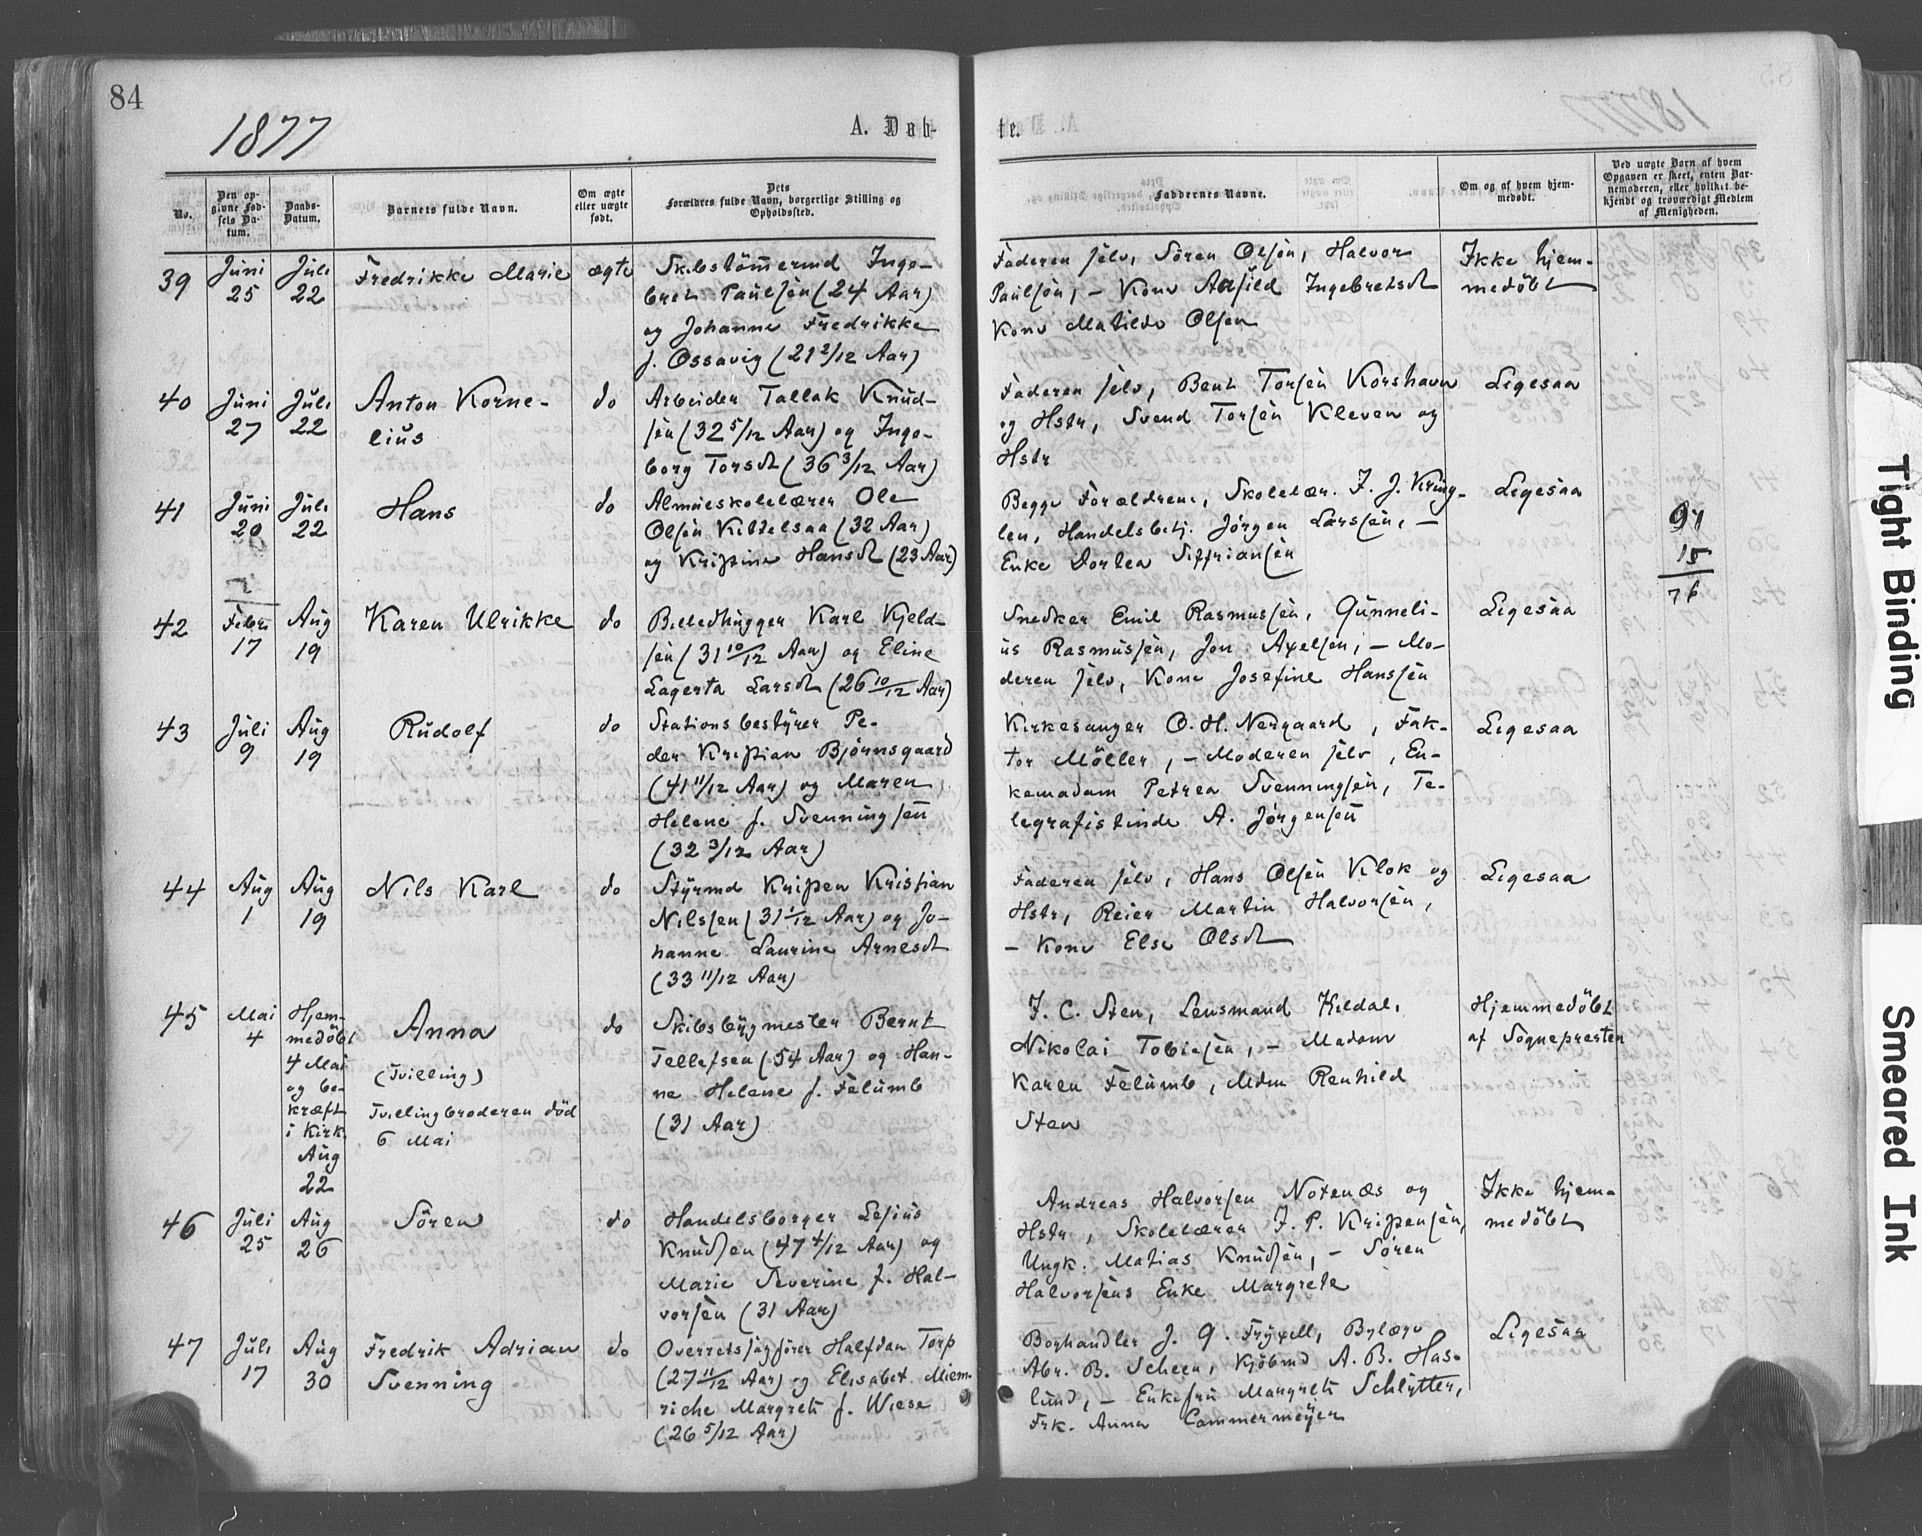 84
1877
A. Døb-
te.
No.
Den op-
givne Fød-
sels Da-
tum.
Daabs-
Datum.
Barnets fulde Navn.
Om ægte
eller uægte
født.
Dets
Forældres fulde Navn, borgerlige Stilling og
Opholdssted.
Faddernes Navne.
Om og af hvem hjem-
medøbt.
Ved uægte Barn af hvem
Opgaven er skeet, enten Bar-
nemoderen, eller hvilket be-
kjendt og troværdigt Medlem
af Menigheden.
39
Juni
25
Juli
22
Fredrikke Marie
ægte
Skibstømermd Inge-
bret Paulsen (24 Aar)
og Johanne Fredrikke
f. Ossavig (21 2/12 Aar)
Faderen selv, Sören Olsön, Halvor
Paulsön, – Kone Aasild Ingebretsdt
Kone Matilde Olsen
Ikke hjem-
medöbt
40
Juni
27
Juli
22
Anton Korne-
lius
do
Arbeider Tallak Knud-
sen (32 5/12 Aar) og Inge-
borg Torsdt (36 3/12 Aar)
Faderen selv, Bent Torsen Korshavn
og Hstr, Svend Torsen Kleven og
Hstr
Ligesaa
41
Juni
20
Juli
22
Hans
do
Almueskolelærer Ole
Olsen Kittelsaa (32 Aar)
og Kristine Hansdt (23 Aar)
Begge Forældrene, Skolelær. F. J. Kring-
len, Handelsbetj. Jörgen Larssen, –
Enke Dortea Siffriansen
Ligesaa
91
15
76
42
Febr
17
Aug
19
Karen Ulrikke
do
Billedhugger Karl Kjeld-
sen (31 10/12 Aar) og Eline
Lagerta Larsdt (26 10/12 Aar)
Snedker Emil Rasmussen, Gunneli-
us Rasmussen, Jon Axelsen, – Mo-
deren selv, Kone Josefine Hanssen
Ligesaa
43
Juli
9
Aug
19
Rudolf
do
Stationsbestyrer Pe-
der Kristian Bjørnsgaard
(41 11/12 Aar) og Maren
Helene f. Svenningsen
(32 3/12 Aar)
Kirkesanger O. H. Nergaard, Fak-
tor Möller, – Moderen selv, En-
kemadam Petrea Svenningsen, Te-
legrafistinde A. Jørgensen
Ligesaa
44
Aug
1
Aug
19
Nils Karl
do
Styrmd Kristen Kristian
Nilssen (31 1/12 Aar) og Jo-
hanne Laurine Arnesdt
(33 11/12 Aar)
Faderen selv, Hans Olsen Klok og
Hstr, Reier Martin Halvorsen,
– Kone Else Olsdt
Ligesaa
45
Mai
4
Hjem-
medöbt
4 Mai
og be-
kræft
i Kirk.
Aug
22
Anna
(Tvilling)
Tvillingbroderen död
6 Mai
do
Skibsbygmester Bernt
Tellefsen (54 Aar) og Han-
ne Helene f. Felumb
(31 Aar)
J. C. Sten, Lensmand Kildal,
Nikolai Tobiesen, – Madam
Karen Felumb, Mdm Renhild
Sten
Hjemmedöbt
af Sognepresten
46
Juli
25
Aug
26
Sören
do
Handelsborger Lesius
Knudsen (47 4/12 Aar) og
Marie Severine f. Hal-
vorsen (31 Aar)
Andreas Halvorsen Notenæs og
Hstr, Skolelærer F. P. Kristensen,
Ungk. Matias Knudsen, – Sören
Halvorsens Enke Margrete
Ikke hjem-
medöbt
47
Juli
17
Aug
30
Fredrik Adrian
Svenning
do
Overretssagfører Halfdan Torp
(27 11/12 Aar) og Elisabet Miem-
riche Margrete f. Wiese
(26 5/12 Aar)
Boghandler J. G. Fryxell, Bylæge
Abr. B. Scheen, Kjöbmd A. B. Has-
lund, – Enkefru Margrete Schlytter,
Frk. Anna Cammermeyer
Ligesaa
Tight Binding
Smeared Ink